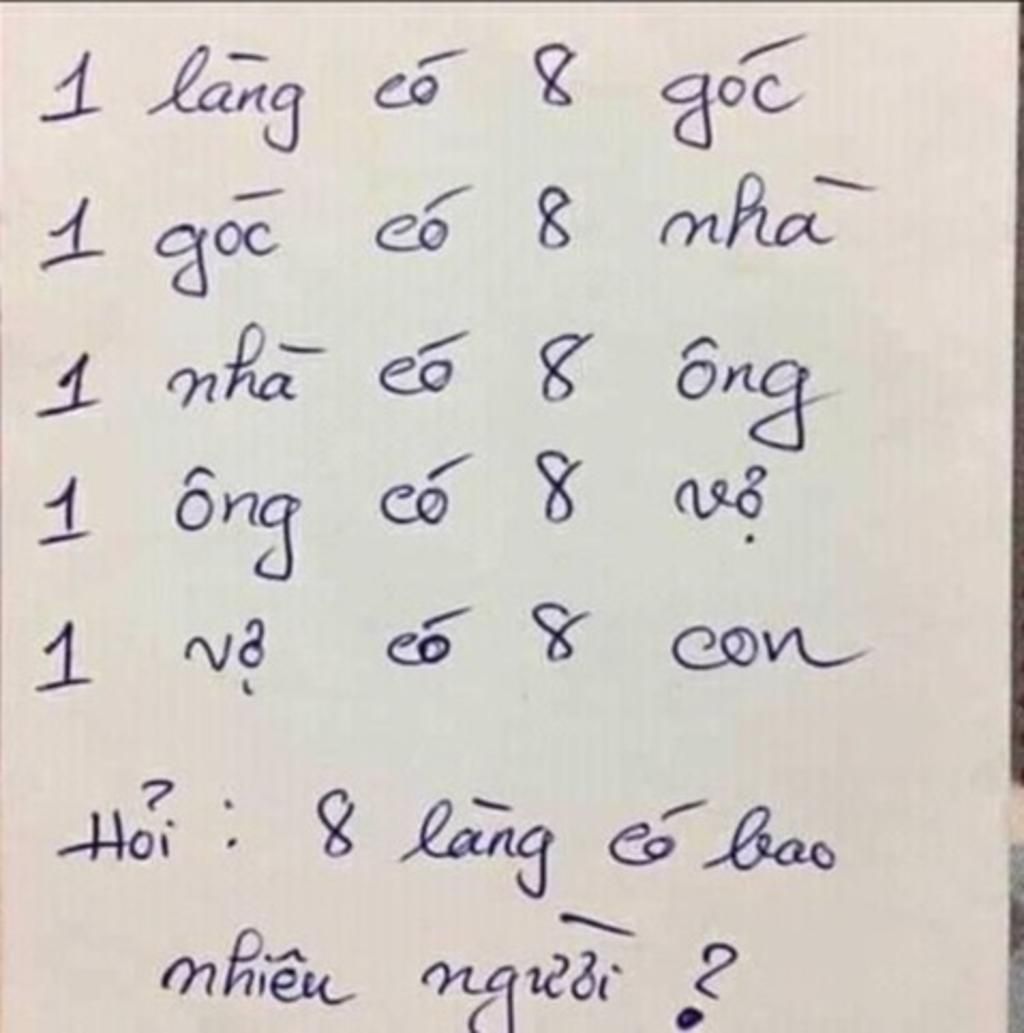 1 làng có 8 góc
1 góc có 8 nhà
1 nhà có 8 ông
1 ông có 8 vợ
1 vợ có 8 con
Hỏi : 8 làng có bao
nhiêu người ?